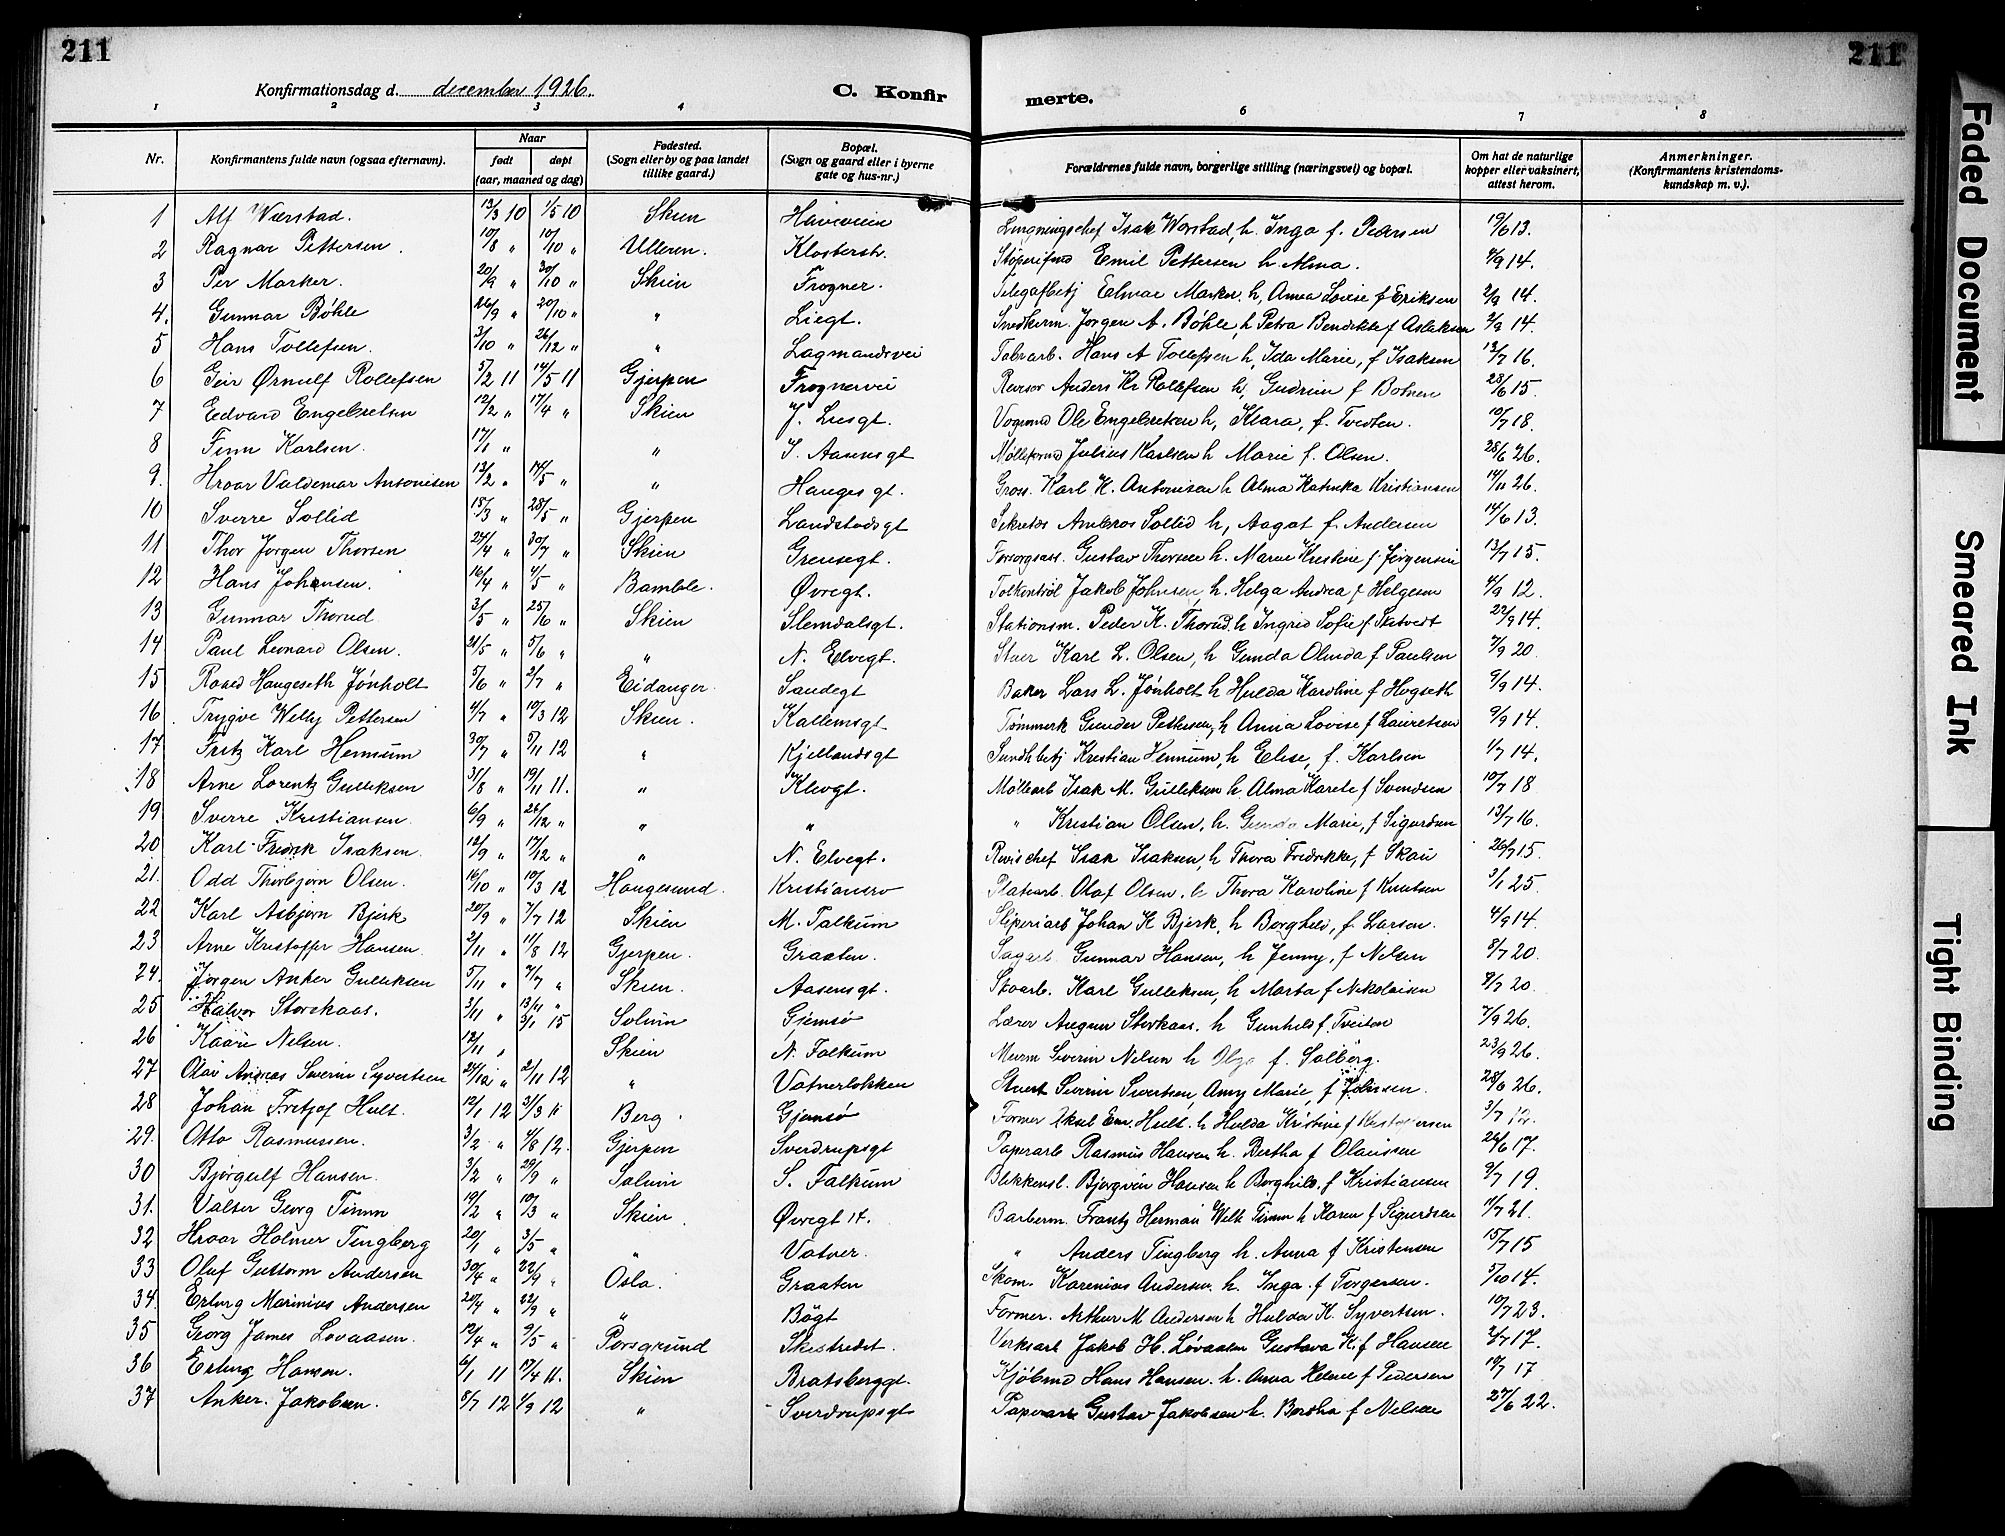 211
211
Konfirmationsdag d. december 1926.
C. Konfirmerte.
1 2 3 4 6 7 8
Nr. | Konfirmantens fulde navn (ogsaa efternavn). | Naar født døpt (aar, maaned og dag) | Fødested. (Sogn eller by og paa landet tillike gaard.) | Bopæl. (Sogn og gaard eller i byerne gate og hus-nr.) | Forældrenes fulde navn, borgerlige stilling (næringsvei) og bopæl. | Om hat de naturlige kopper eller vaksinert, attest herom. | Anmerkninger. (Konfirmantens kristendoms-kundskap m. v.).
1 Alf Værstad. 13/3 10 1/5 10 Skien Isak Worstad, h. Inga f. Pedersen 19/6 13.
2 Ragnar Pettersen. 10/8 " 10/10 " Ulleren. Klosterstr. Emil Pettersen h. Alma. 4/9 14.
3 Per Marker. 20/9 " 30/10 " Skien Frogner. Marker. h, Anna Lovise f Eriksen 2/9 14.
4. Gunnar Bøhle 26/9 " 20/10 " " Liegt. Snedkerm. Jørgen A. Bøhle, h Petra Bendikte f Aslaksen 2/9 14.
5 Hans Tollefsen. 3/10 " 26/12 " " Lagmandsvei Hans A Tollefsen h, Ida Marie, f Isaksen 13/7 16.
6 Geir Ørnulf Rollefsen 5/2 11 14/5 11 Gjerpen Frognervei Revisor Anders Kr Rollefsen h, Gudrun f 28/6 15.
7 Edvard Engebretsen 12/2 " 17/4 " Skien J. Liesgt. Vognmd Ole Engebretsen h, Klara, f. Tvedten. 10/7 18.
8 Finn Karlsen. 17/1 " " I. Aasensgt Julius Karlsen h Marie f. Olsen. 28/6 26.
9. Hroar Valdemar Antonisen 13/2 " 14/5 " " Hauges gt. Gross. Karl K. Antonisen h Alma Katinka Kristiansen 14/11 26.
10 Sverre Sollid 18/3 " 28/5 " Gjerpen Landstadsgt Sekretær Ambros Sollid h, Aagot f. Andersen 14/6 13.
11 Thor Jørgen Thorsen 24/4 " 30/7 " Skien Grensegt. Gustav Thorsen h. Marie Kristine f Jørgensen 13/7 15.
12 Hans Johansen. 16/4 " 4/5 " Bamble. Øvregt. Jakob Johnsen, h. Helga Andrea f Helgesen 4/9 12.
13 Gunnar Thorud 3/5 " 25/6 " Skien Slemdalsgt. Stationsm. Peder K. Thorud. h Ingrid Sofie f Skatvedt 22/9 14.
14 Paul Leonard Olsen. 21/5 " 5/6 " " N. Elvegt. Karl L. Olsen, h Gunda Olinda f Paulsen 7/9 20.
15 Haugeseth Jønholt 5/6 " 2/7 " Eidanger. Sandegt Baker Lars L. Jønholt h Hulda Karoline f Hogseth 9/9 14.
16. Trygve Welly Pettersen 4/7 " 10/3 12 Skien. Kallemsgt Tømmerk Gunder Pettersen, h Anna Lovise f Lauretsen 9/9 14.
17 Fritz Karl Hennum 30/7 " 5/11 12 " Kjellandsgt Kristian Hennum, h Elise, f. Karlsen 1/7 14.
18 Arne Lorentz Gulleksen 31/8 " 19/11 11. " Klevgt. Møllearb Isak M. Gulleksen h. Alma Karete f Svendsen 10/7 18
19 Sverre Kristiansen. 6/9 " 26/12 " " " " Kristian Olsen, h. Gunda Marie, f Sigurdsen 13/7 16.
20 Karl Fredrik Isaksen. 12/9 " 17/12 " " N. Elvegt. Isak Isaksen, h Thora Fredrikke, f Skau 26/7 15.
21. Odd Thorbjørn Olsen. 16/10 " 10/3 12 Haugesund. Olaf Olsen. h Thora Karoline f Knutsen 3/1 25.
22 Karl Asbjørn Bjerk 20/9 " 7/7 12 Skien M. Falkum Sliperiarb Johan K Bjerk, h Borghild, f. Larsen. 4/9 14.
23 Arne Kristoffer Hansen. 2/11 " 11/8 12 Gjerpen. Graaten. Sagarb. Gunnar Hansen, h Jenny, f Nelsen 8/7 20.
24. Jørgen Anker Gulleksen 5/11 " 7/7 " Skien. Aasensgt. Skoarb. Karl Gulleksen, h Marta f Nikolaisen 8/7 20.
25 Halvor Storekaas. 3/11 " 13/11 " 3/1 15 Solum Gjemsø Lærer Storkaas. h Gunhild f. Tveitan 7/9 26.
26 Kaare Nelsen. 12/11 " Skien N. Falkum Murm Severin Nelsen h Olga f. Solberg. 23/9 26.
27 Olav Andreas Severin Syvertsen 24/12 " 2/11 12 " Vatnerløkken Severin Sivertsen, Anny Marie, f Johnsen. 28/6 26.
28 Johan Fritjof Hult. 12/1 12 3/3 Berg. Gjemsø Former Aksel Em. Hult. h Hulda Kristine f 3/7
29. Otto Rasmussen. 3/2 " 4/8 12. Gjerpen Sverdrupsgt Paperarb Rasmus Hansen h. Bertha f Olaussen 26/6 17.
30 Bjørgulf Hansen. 3/2 " 29/9 " Solum S. Falkum Blikkensl. Bjørgvin Hansen h Borghild, f Kristiansen 9/7 19.
31. Valter Georg Timm 19/2 " 10/3 " Skien Øvregt 14. Barberm. Frantz Herman Welt Timm h Karen f Sigurdsen 11/7 21.
32 Hroar Holmer Tingberg 20/1 " 3/5 " " Vatner. " Anders Tingberg h. Anna f Kristensen 15/7 15
33 Oluf Guttorm Andersen 30/4 " 22/9 " Oslo. Graaten Skom. Karenius Andersen. h. Inga f Torgersen. 5/10 14.
34. Erling Marinius Andersen 20/4 " 22/9 " " Bøgt Former. Arthur M Andersen h Hulda K. Syvertsen. 10/7 23.
35 Georg James Lovaasen. 12/4 " 9/5 " Porsgrund Skistredet. Verksarb Jakob H. Løvaasen Gustava K. f Hansen 2/7 17.
36 Erling Hansen. 6/1 11 17/4 11. Skien Bratsberggt. Kjøbmd Hans Hansen. h. Anna Helene f Pedersen 19/7 17
37 Anker. Jakobsen. 8/7 12 4/9 12 " Sverdrupsgt Paperarb Gustav Jakobsen h. Bertha f Nelsen 27/6 22.
Faded Document
Smeared Ink
Tight Binding